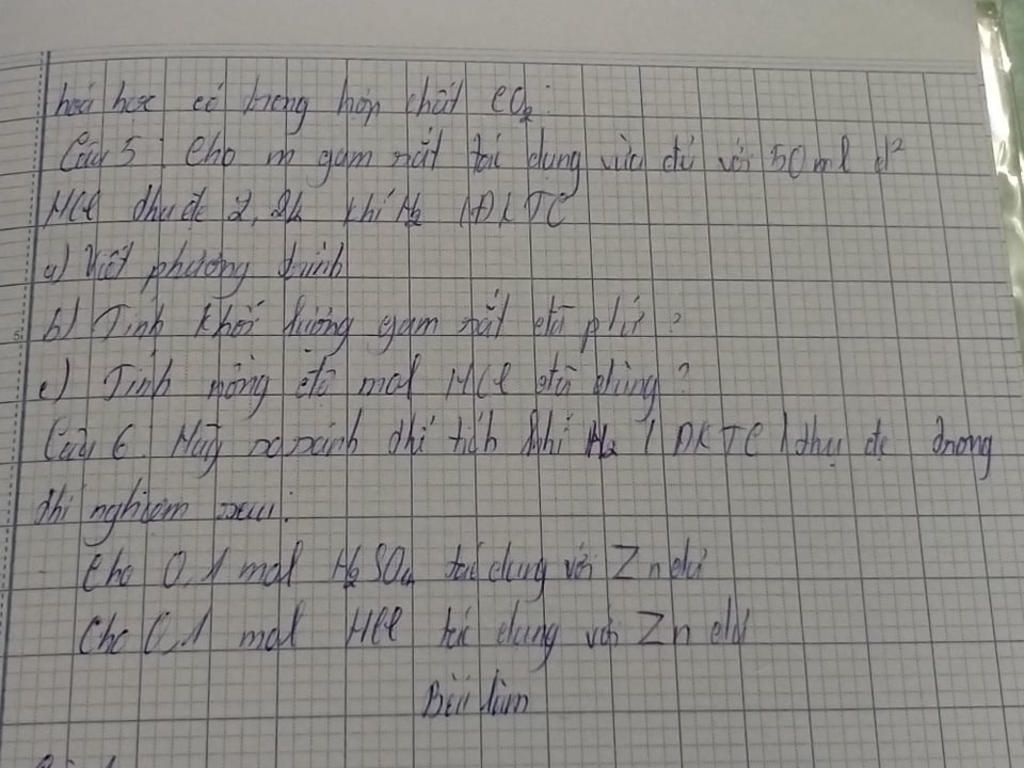 hoá học có trong hợp chất CO₂:
Câu 5: Cho m gam sắt tác dụng vừa đủ với 50ml d²
HCl thu đc 2,24 khí H₂ (ĐKTC
a) Viết phương trình
b) Tính khối lượng gam sắt đã p/ứ?
c) Tính nồng độ mol HCl đã dùng?
Câu 6: Hãy so sánh thể tích khí H₂ (ĐKTC) thu đc trong
thí nghiệm sau:
Cho 0,1 mol H₂SO₄ tác dụng với Zn dư
Cho 0,1 mol HCl tác dụng với Zn dư
Bài làm